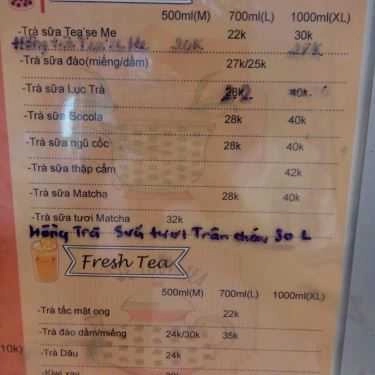 500ml(M) 700ml(L) 1000ml(XL)
-Trà sữa Tea'se Me 22k 30k
Hồng Trà Tea'se Me 20K 27K
-Trà sữa đào(miếng/dầm) 27k/25k
-Trà sữa Lục Trà 40k
-Trà sữa Socola 28k 40k
-Trà sữa ngũ cốc 28k 40k
-Trà sữa thập cẩm 42k
-Trà sữa Matcha 28k 40k
-Trà sữa tươi Matcha 32k
Hồng Trà Sữa tươi Trân châu 30 L
Fresh Tea
500ml(M) 700ml(L) 1000ml(XL)
-Trà tắc mật ong 22k
-Trà đào dầm/miếng 24k/30k 35k
10k) -Trà Dâu 24k
-Kiwi xay